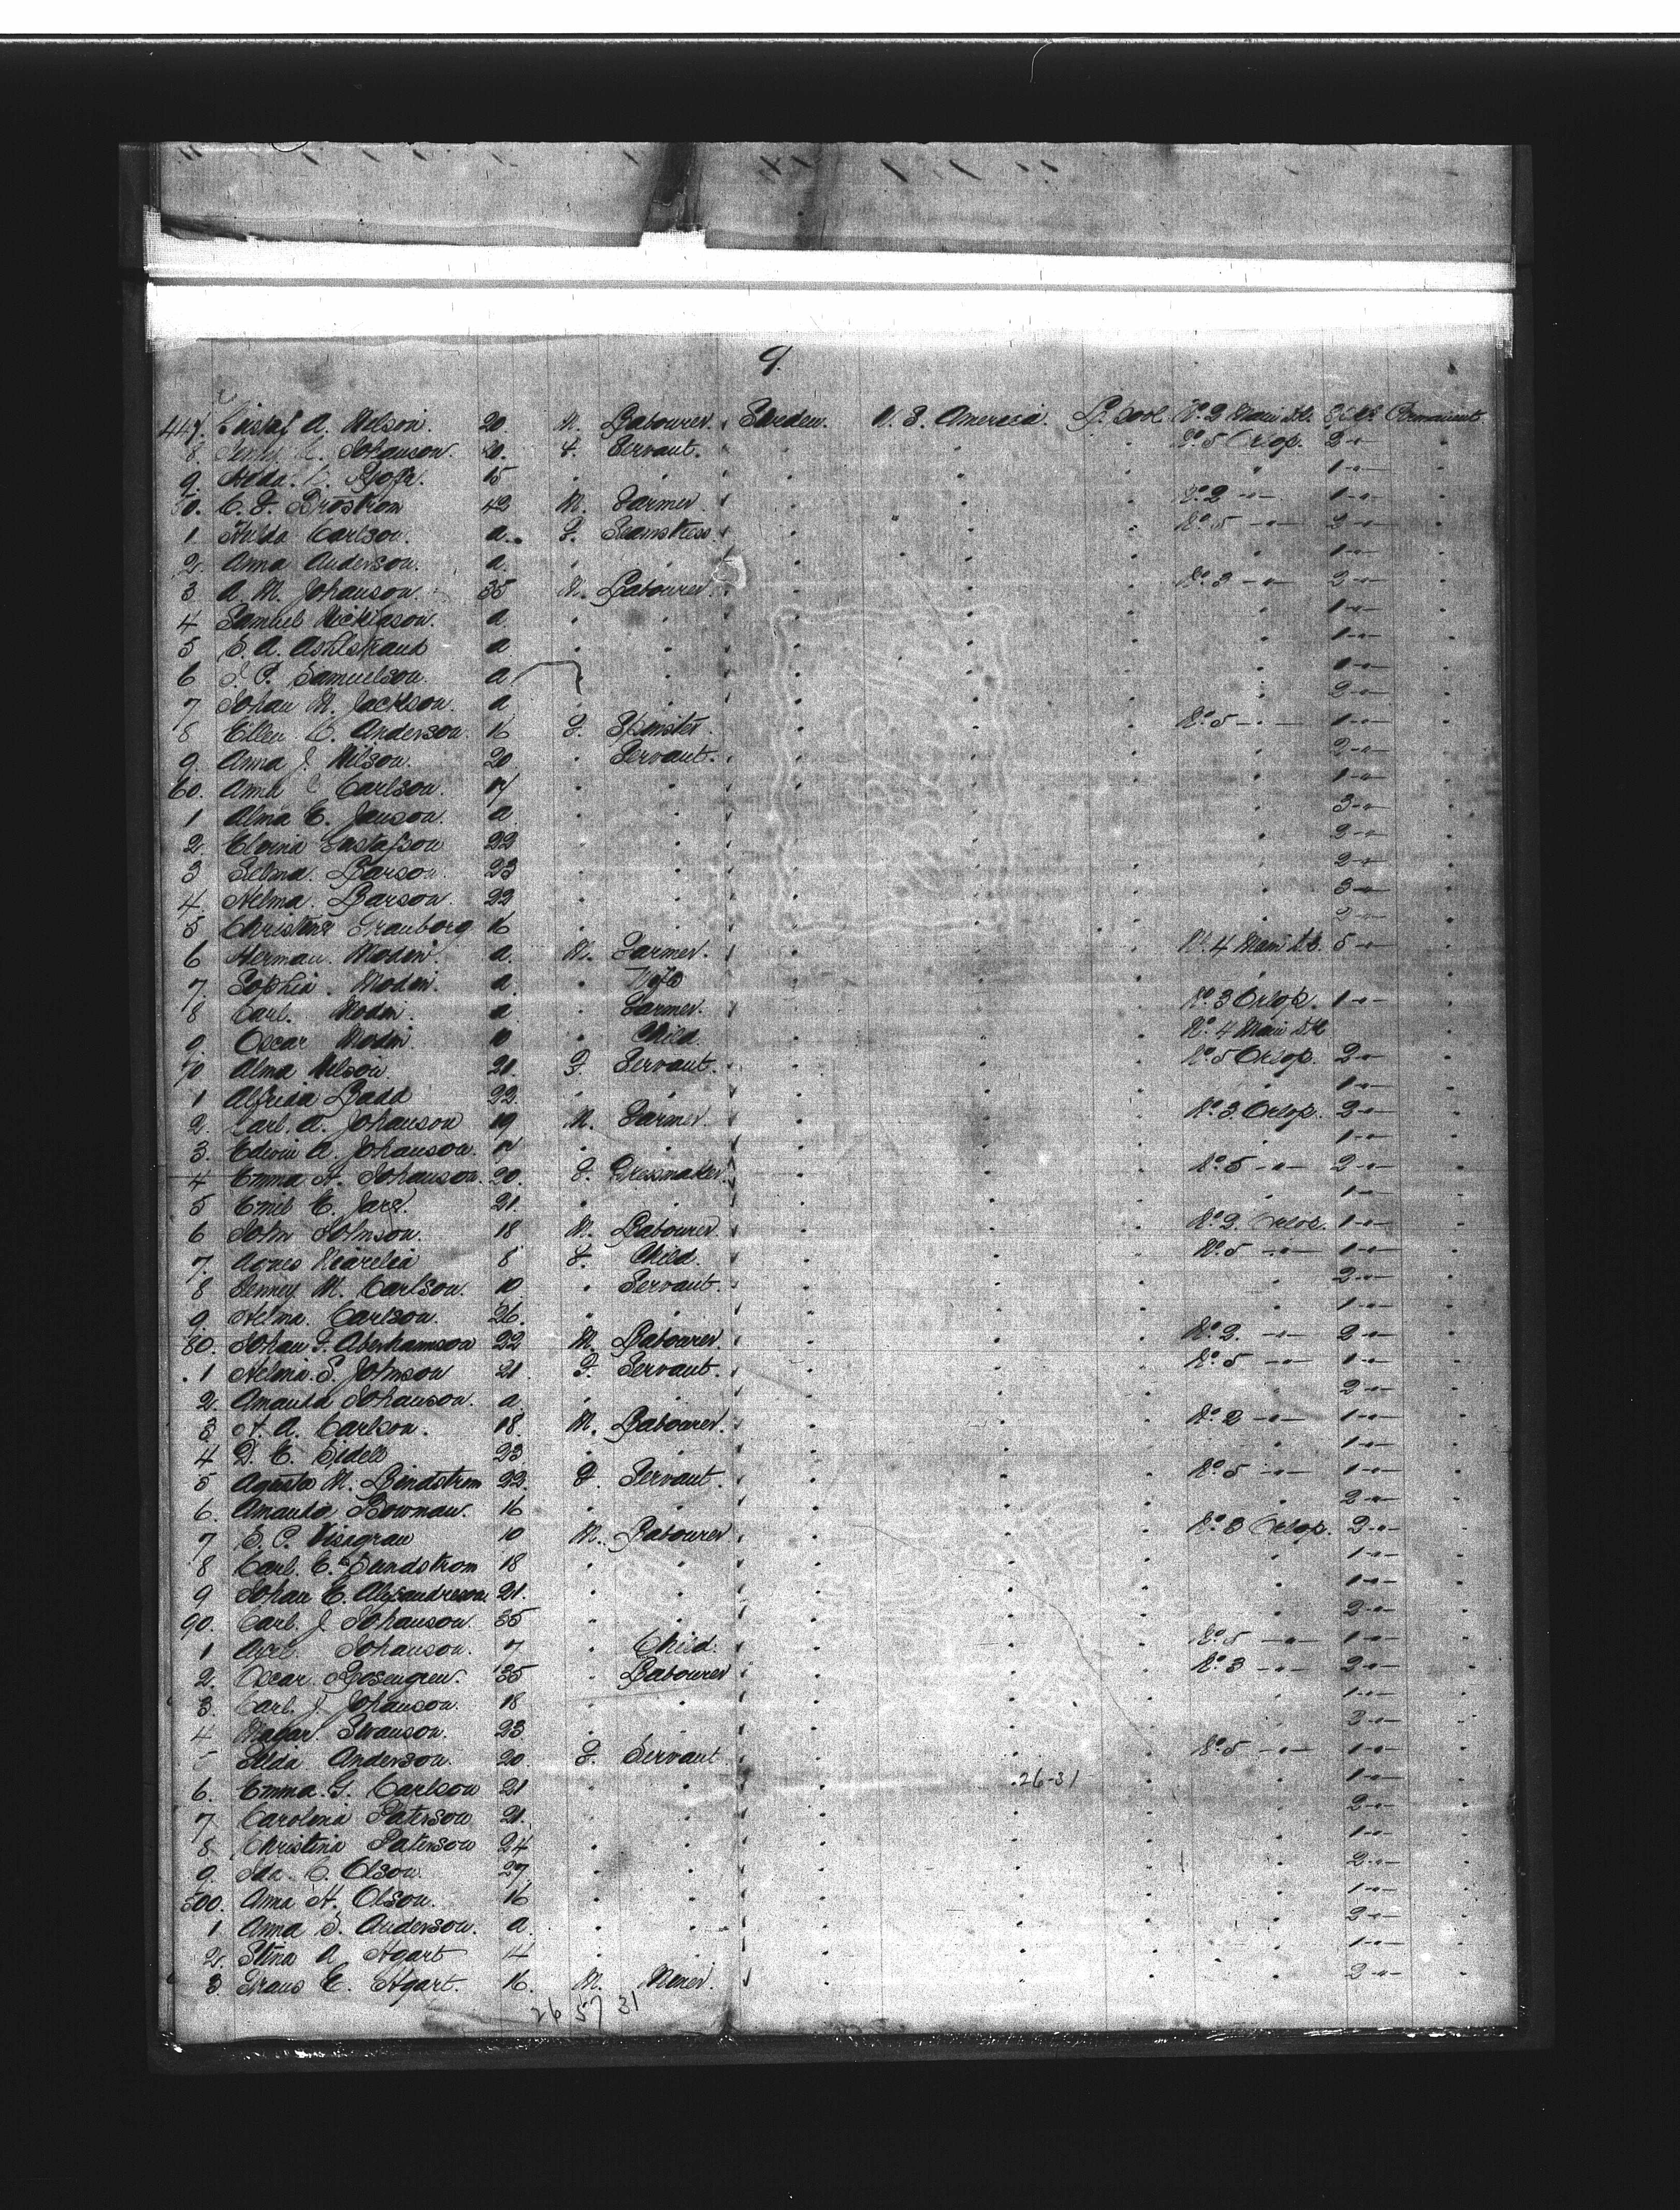 9.
447. Gustaf A. Nelson. 20 M. Labourer. Sweden. U. S. America. L. pool No. 2 Main Dk. Permanent
8. Johanson. 20. F. Servant. No. 5 Orlop. 2 -"-
9. Hilda. 15 " " 1 -"-
50. C. F. Brostrom 43 M. Farmer. No. 2 -"- 1 -"-
1 Hulda Carlson. a. F. Seamstress. No. 5 -"- 2 -"-
2. Anna Anderson. a. " " 1 -"-
3 A. M. Johanson. 35 M. Labourer. No. 3 -"- 2 -"-
4 Samuel a " " 1 -"-
5 S. A. Ashlstrand a " " 1 -"-
6 P. Samuelson. a " " 1 -"-
7 Johan M. Jackson. a " " 2 -"-
8 Ellen C. Anderson. 16 F. Spinster. No. 5 -"- 1 -"-
9. Anna J. Nilson. 20 " Servant. 2 -"-
60. Anna C. Carlson. 17 " " 1 -"-
1 Alma E. Janson. a " " 3 -"-
2. Elvina Gustafson 22 " " 2 -"-
3 Selma. Larson. 23 " " 2 -"-
4. Helma. Larson. 22 " " 3 -"-
5 Christine Granborg 16 " " 2 -"-
6 Herman. Modin. a. M. Farmer. No. 4 Main Dk. 5 -"-
7. Sophia. Modin. a. " Wife "
8 Carl. Modin. a " Farmer. No. 3 Orlop. 1 -"-
9. Oscar Modin. 10 " Child No. 4 Main Dk
70 Alma Nelson. 21 F. Servant. No. 5 Orlop. 2 -"-
1 Alfrida Ladd 22. " " 1 -"-
2. Carl. A. Johanson 19 M. Farmer. No. 3. Orlop. 2 -"-
3. Edwin A. Johanson. 17 " " 1 -"-
4 Emma H. Johanson. 20. F. Dressmaker. No. 5 -"- 2 -"-
5 Emil E. 21. " " 1 -"-
6 John Johnson. 18 M. Labourer. No. 2. Orlop. 1 -"-
7. Agnes 8 F. Child. No. 5 -"- 1 -"-
8 Jenney M. Carlson. 10. " Servant. 2 -"-
9. Helma. Carlson. 26. " " 1 -"-
80. Johan F. Aberhamson 22 M. Labourer. No. 2. -"- 2 -"-
1 Helmia. S. Johnson 21. F. Servant. No. 5 -"- 1 -"-
2. Amanda Johanson. a. " " 2 -"-
3 A. A. Carlson. 18. M. Labourer. No. 2 -"- 1 -"-
4 D. E. Sidell 23 " " 1 -"-
5 Agusta M. Lindstrom 22. F. Servant. No. 5 -"- 1 -"-
6. Amanda Bowman. 16 " " 2 -"-
7 S. P. 10 M. Labourer No. 3 Orlop. 2 -"-
8 Carl. E. Sundstrom 18 " " 1 -"-
9 Johan E. Alexandreson 21. " " 1 -"-
90. Carl. J. Johanson. 35 " " 2 -"-
1 Axel. Johanson. 7 " Child. No. 5 -"- 1 -"-
2. Oscar Rosengren. 35 " Labourer No. 3 -"- 2 -"-
3. Carl. J. Johanson. 18 " " 1 -"-
4 Swanson. 23 " " 2 -"-
5 Anderson. 20 F. Servant No. 5 -"- 1 -"-
6. Emma. G. Carlson 21 " " 26-31 1 -"-
7 Carolina Paterson 21. " " 2 -"-
8. Christina Paterson 24 " " 1 -"-
9. Ida. C. Olson. 27 " " 2 -"-
500. Anna H. Olson. 16 " " 1 -"-
1 Anna S. Anderson. a. " " 2 -"-
2. Stina A. Hgart 14 " " 1 -"-
3. Frans E. Hgart. 16. M. Miner. 2 -"-
26 57 31